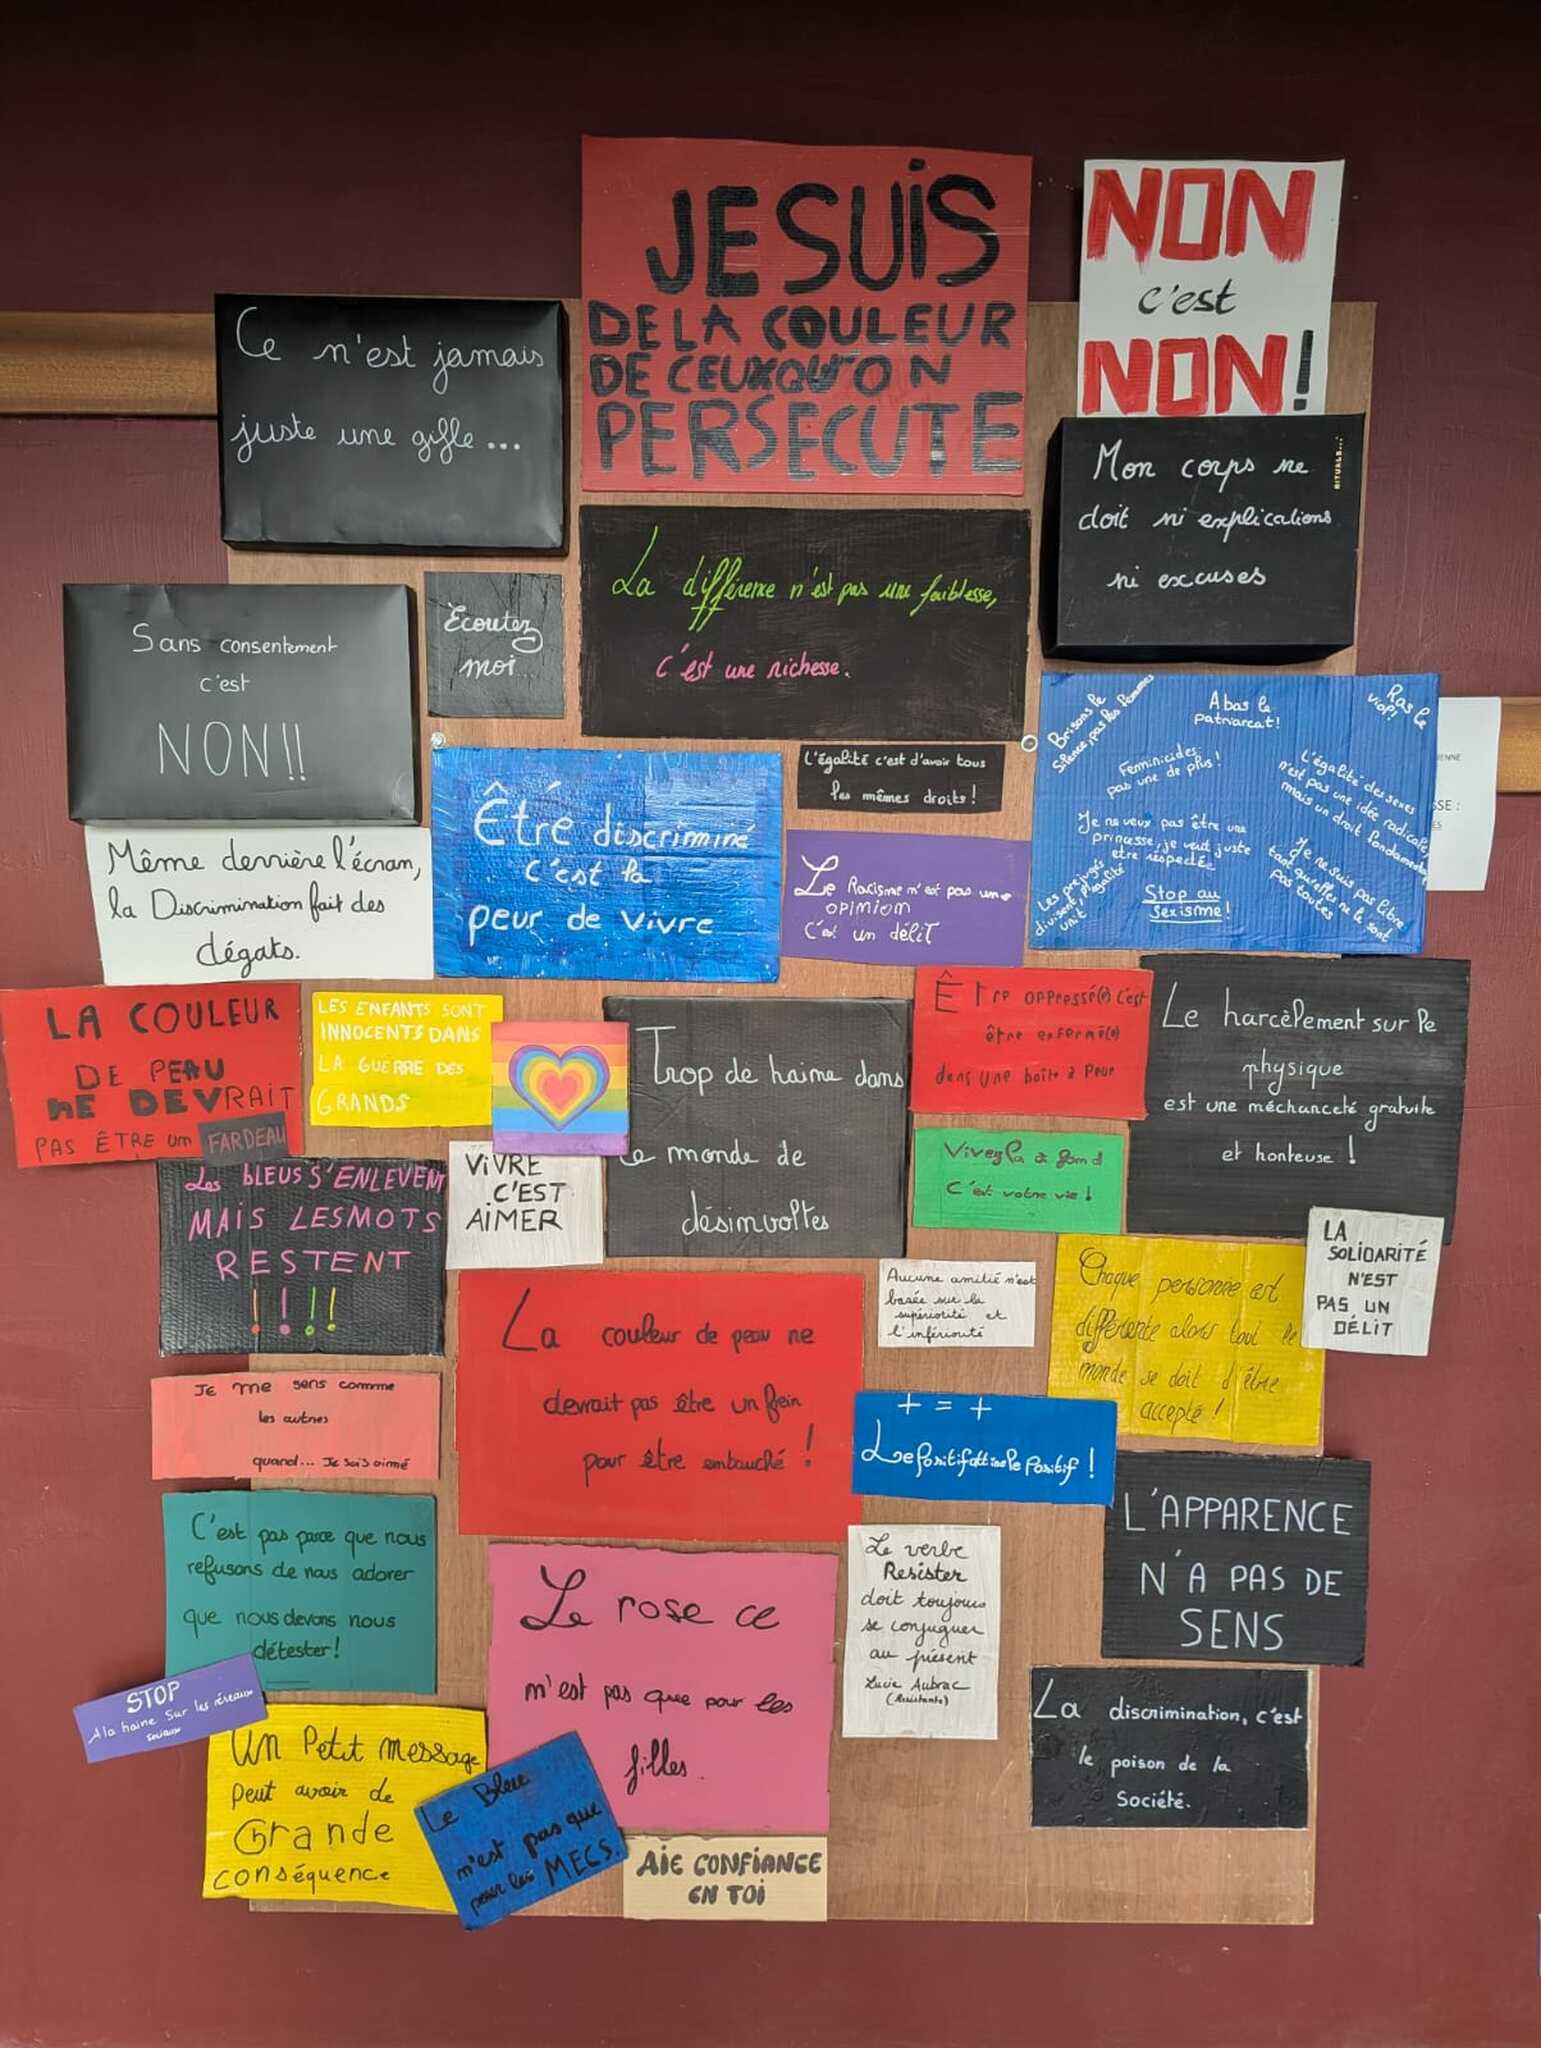 JE SUIS
DE LA COULEUR
DE CEUX QU'ON
PERSECUTE
NON
c'est
NON!
Ce n'est jamais
juste une gifle...
Mon corps ne
doit ni explications
ni excuses
RITUALS...
La différence n'est pas une faiblesse,
c'est une richesse.
Ecoutez
moi
Sans consentement
c'est
NON!!
Brisons le
silence, pas les femmes
Abas le
patriarcat!
Ras le
viol!
Feminicides:
pas une de plus!
L'égalité des sexes
n'est pas une idée radicale
mais un droit fondamental
Je ne veux pas être une
princesse, je veut juste
etre respectée
Les prejugés
divisent, l'égalité
unit
Stop au
sexisme!
Je ne suis pas libre
tant qu'elles ne le sont
pas toutes
IENNE
SSE :
L'égalité c'est d'avoir tous
les mêmes droits!
Être discriminé
c'est la
peur de vivre
Même derrière l'écran,
la Discrimination fait des
dégats.
Le Racisme n'est pas une
opinion
C'est un délit
LA COULEUR
DE PEAU
NE DEVRAIT
PAS ÊTRE un FARDEAU
LES ENFANTS SONT
INNOCENTS DANS
LA GUERRE DES
GRANDS
Trop de haine dans
ce monde de
désinvoltes
Être oppressé(e) c'est
être enfermé(e)
dans une boîte à peur
Le harcèlement sur le
physique
est une méchanceté gratuite
et honteuse!
Vivez la à fond
C'est votre vie!
Les BLEUS S'ENLEVENT
MAIS LES MOTS
RESTENT
!!!!
VIVRE
C'EST
AIMER
LA
SOLIDARITÉ
N'EST
PAS UN
DÉLIT
Aucune amitié n'est
basée sur la
supériorité et
l'infériorité
Chaque personne est
différente alors tout le
monde se doit d'être
accepté!
La couleur de peau ne
devrait pas être un fein
pour être embauché!
Je me sens comme
les autres
quand... Je suis aimé
+ = +
Le positif attire le positif!
L'APPARENCE
N'A PAS DE
SENS
C'est pas parce que nous
refusons de nous adorer
que nous devons nous
détester!
Le rose ce
n'est pas que pour les
filles.
Le verbe
Resister
doit toujours
se conjuguer
au présent
Lucie Aubrac
(Résistante)
STOP
A la haine sur les réseaux
sociaux
La discrimination, c'est
le poison de la
Société.
Un Petit message
peut avoir de
Grande
conséquence
Le Bleu
n'est pas que
pour les MECS.
AIE CONFIANCE
EN TOI